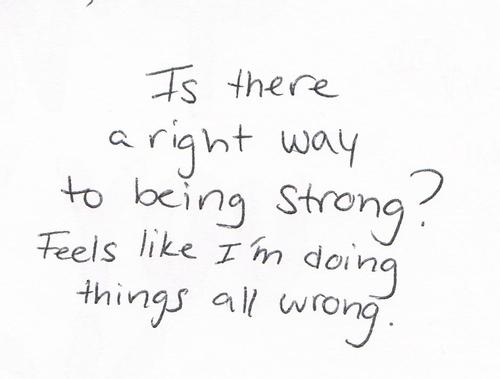 Is there
a right way
to being strong?
Feels like I'm doing
things all wrong.